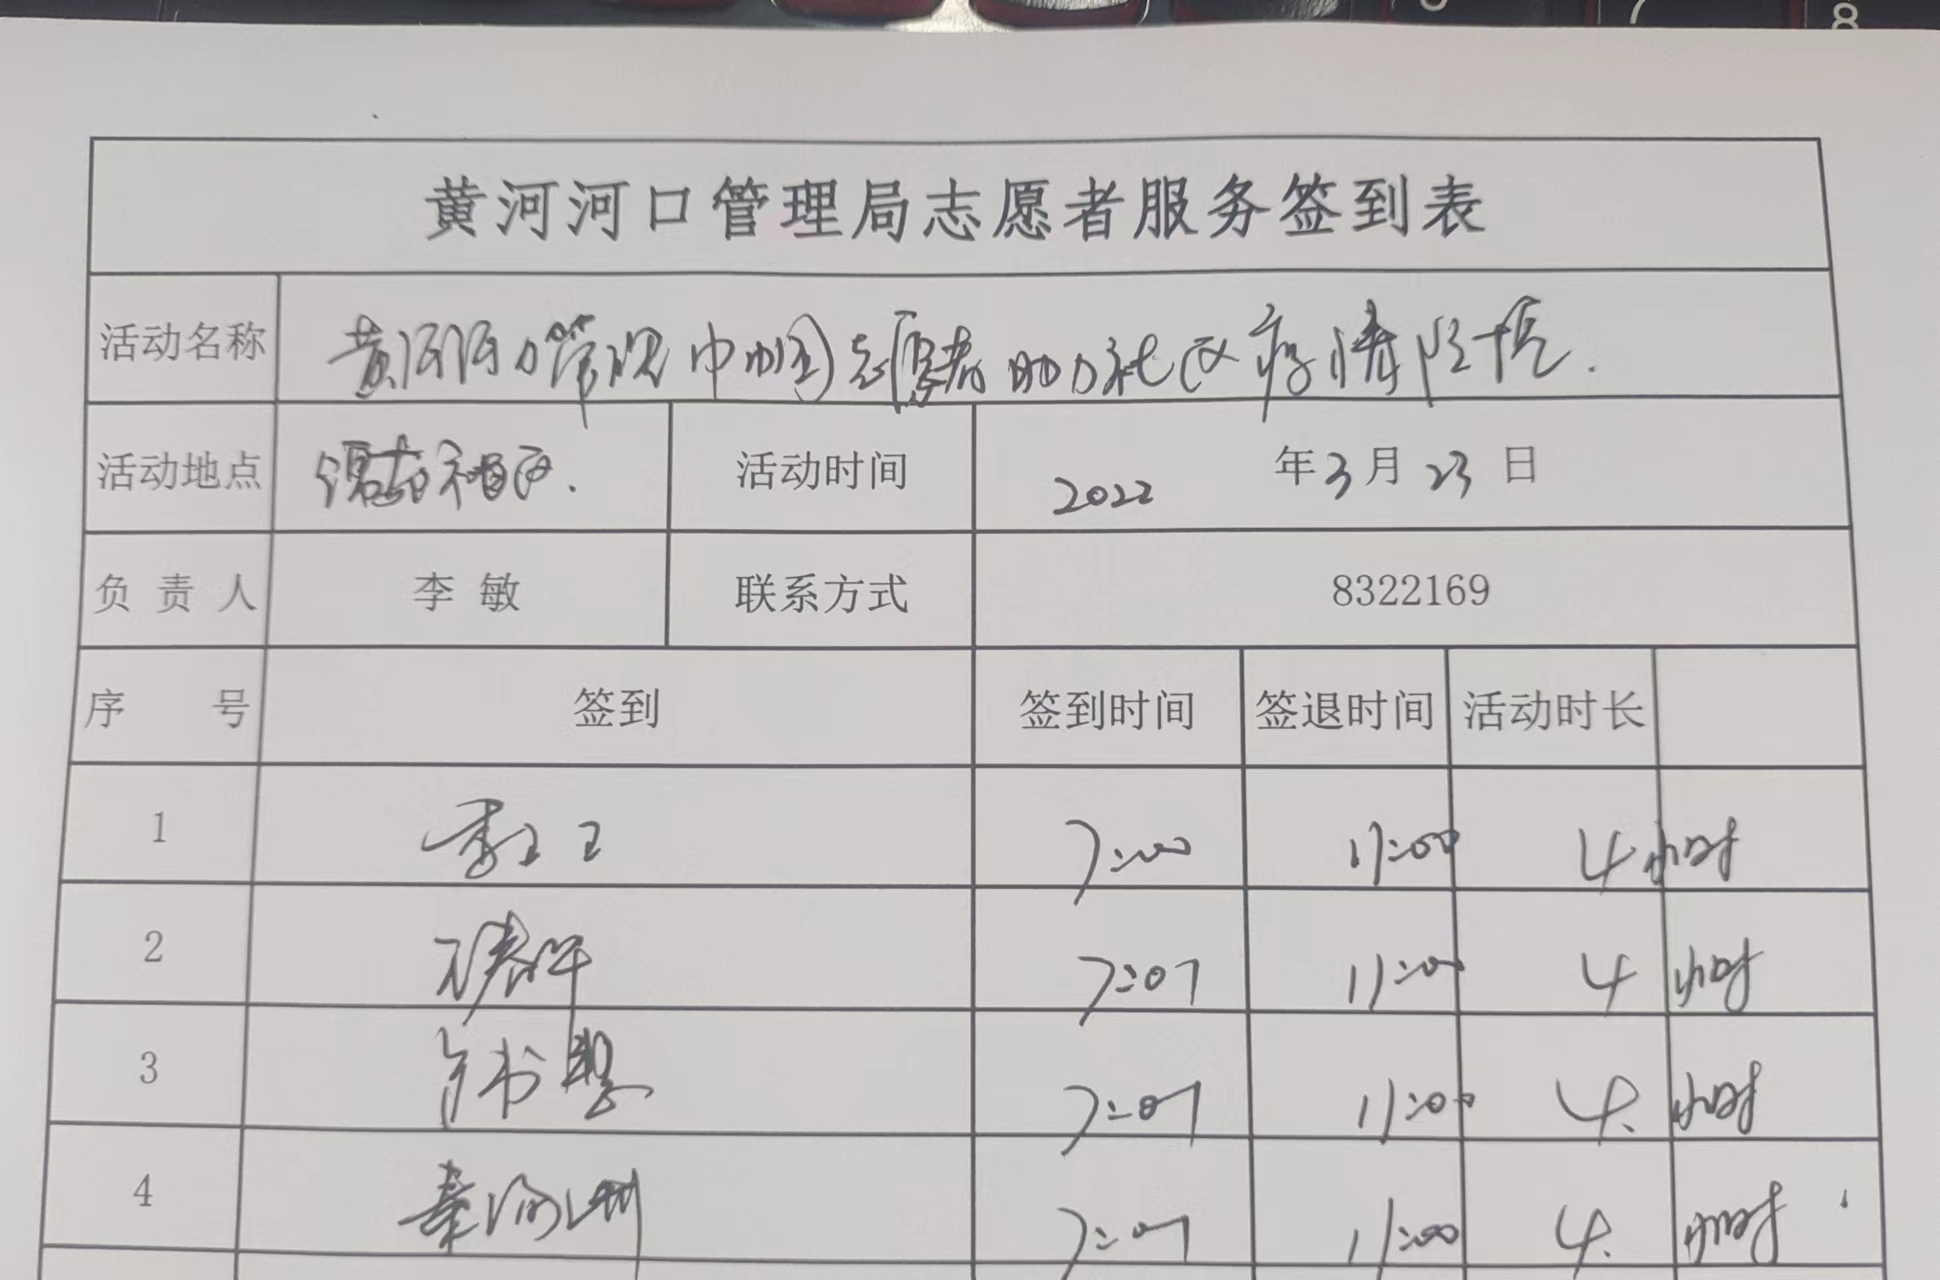 黄河河口管理局志愿者服务签到表
活动名称 黄河河口管理 志愿者助力社区疫情防控.
活动地点 社区. 活动时间 2022 年3月23日
负责人 李敏 联系方式 8322169
序号 签到 签到时间 签退时间 活动时长
1 7:00 11:00 4小时
2 7:07 11:00 4小时
3 7:07 11:00 4.小时
4 7:07 11:00 4.小时